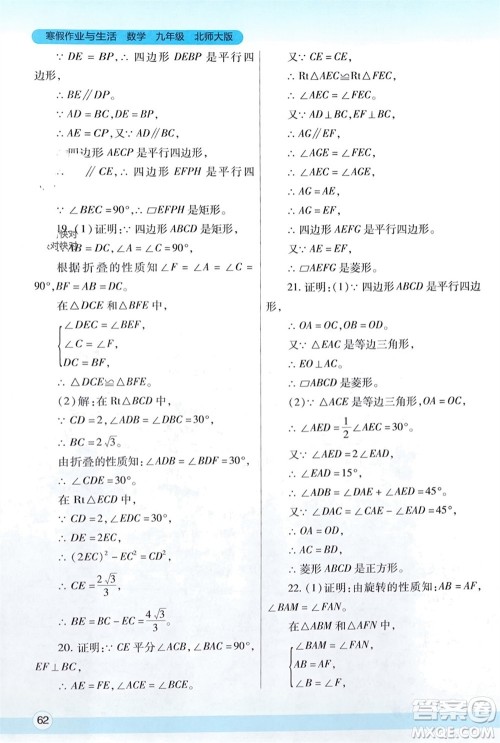 寒假作业与生活 数学 九年级 北师大版
∵DE=BP,∴四边形DEBP是平行四边形,
∴BE∥DP。
∵AD=BC,DE=BP,
∴AE=CP,又∵AD∥BC,
四边形AECP是平行四边形,
∥CE,∴四边形EFPH是平行四边形。
∵∠BEC=90°,∴▱EFPH是矩形。
19.(1)证明:∵四边形ABCD是矩形,
∴AB=DC,∠A=∠C=90°,
根据折叠的性质知∠F=∠A=∠C=90°,BF=AB=DC,
在△DCE和△BFE中,
∠DEC=∠BEF,
∠C=∠F,
DC=BF,
∴△DCE≌△BFE。
(2)解:在Rt△BCD中,
∵CD=2,∠DBC=30°,
∴BC=2√3。
由折叠的性质知:∠EDB=30°,
∴∠CDE=30°。
在Rt△ECD中,
∵CD=2,∠CDE=30°,
∴DE=2EC,
∴(2EC)²-EC²=CD²,
∴CE=2√3/3,
∴BE=BC-EC=4√3/3。
20.证明:∵CE平分∠ACB,∠BAC=90°,EF⊥BC,
∴AE=EF,∠CAE=∠CFE=90°。
∵CE=CE,
∴Rt△AEC≌Rt△FEC,
∴∠AEC=∠FEC。
∵AG∥EF,
∴∠AGE=∠FEC,
∴∠AGE=∠AEC,
∴AG=AE,
∴AG=EF。
∴四边形AEFG是平行四边形。
又∵AE=EF,
∴▱AEFG是菱形。
21.证明:(1)∵四边形ABCD是平行四边形,
∴OA=OC,OB=OD。
又∵△EAC是等边三角形,
∴EO⊥AC。
∴▱ABCD是菱形。
(2)∵△ACE是等边三角形,
∴∠AED=1/2∠AEC=30°,
∴∠EAC=60°。
又∵∠AED=2∠EAD,
∴∠EAD=15°,
∴∠DAO=∠EAC-∠EAD=45°,
∴∠ADO=∠DAO=45°,
∴OA=OD,
∴AC=BD,
∴菱形ABCD是正方形。
22.(1)证明:由旋转的性质知:AB=AF,∠BAM=∠FAN,
在△ABM和△AFN中,
∠FAN=∠BAM,
62
答案圈
MXQE.COM